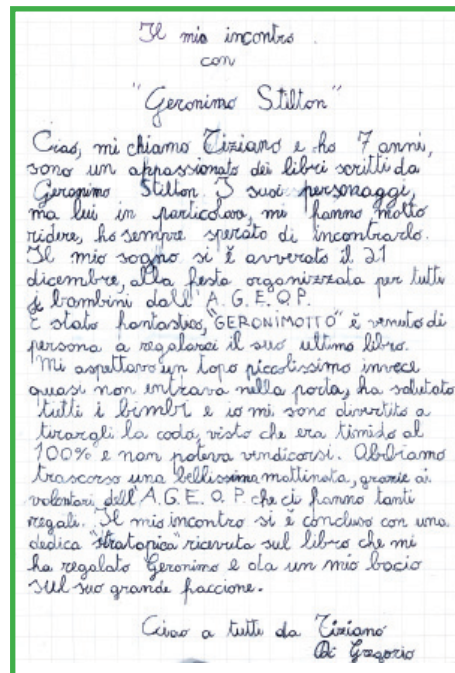 Il mio incontro
con
"Geronimo Stilton"
Ciao, mi chiamo Tiziano e ho 7 anni,
sono un appassionato dei libri scritti da
Geronimo Stilton. I suoi personaggi,
ma lui in particolare, mi fanno molto
ridere, ho sempre sperato di incontrarlo.
Il mio sogno si è avverato il 21
dicembre, alla festa organizzata per tutti
i bambini dall' A.G.E.O.P.
È stato fantastico, "GERONIMOTTO" è venuto di
persona a regalarci il suo ultimo libro.
Mi aspettavo un topo piccolissimo invece
quasi non entrava nella porta, ha salutato
tutti i bimbi e io mi sono divertito a
tirargli la coda, visto che era timido al
100% e non poteva vindicarsi. Abbiamo
trascorso una bellissima mattinata, grazie ai
volontari dell'A.G.E.O.P. che ci fanno tanti
regali. Il mio incontro si è concluso con una
dedica "stratopica" ricevuta sul libro che mi
ha regalato Geronimo e da un mio bacio
sul suo grande faccione.
Ciao a tutti da Tiziano
Di Gregorio